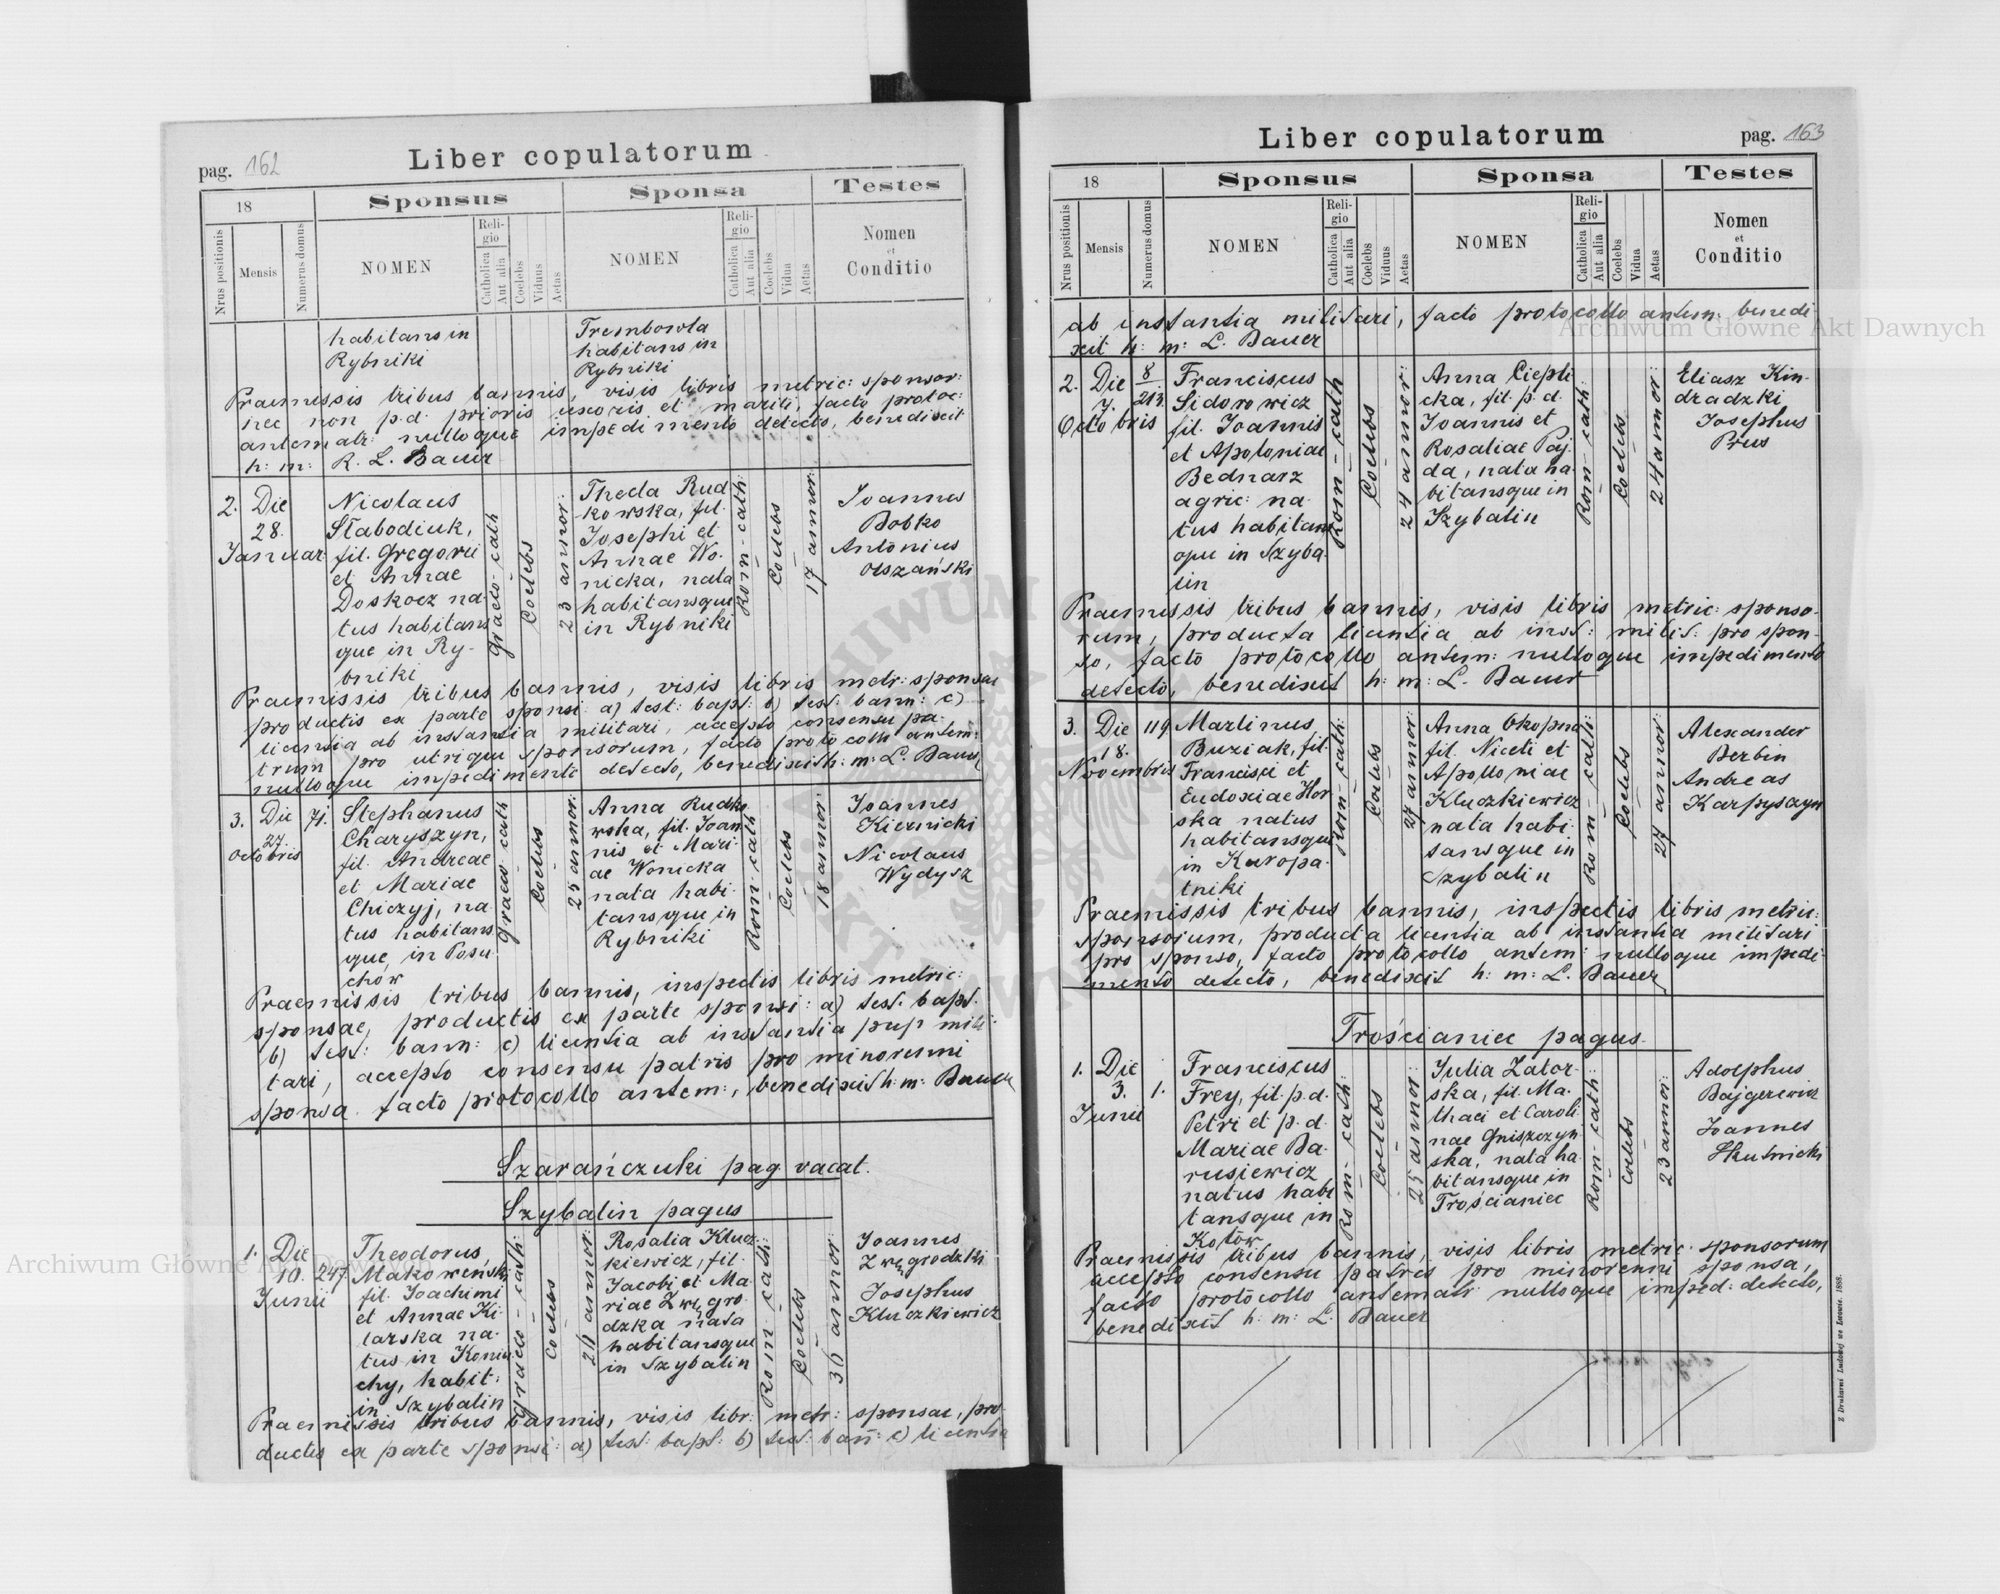 pag. 162
Liber copulatorum
18
Sponsus
Sponsa
Testes
Nrus positionis
Mensis
Numerus domus
NOMEN
Religio
Catholica
Aut alia
Coelebs
Viduus
Aetas
NOMEN
Religio
Catholica
Aut alia
Coelebs
Vidua
Aetas
Nomen
et
Conditio
habitans in
Rybniki
Trembowla
habitans in
Rybniki
Praemissis tribus bannis, visis libris metric: sponsor:
nec non p.d. prioris uxoris et mariti, facto protoc:
antematr: nulloque impedimento detecto, benedixit
h: m: R. L. Bauer
2. Die
28.
Januar
Nicolaus
Słabodiuk,
fil. Gregorii
et Annae
Doskocz na-
tus habitans
que in Ry-
bniki
graeco-cath
Coelebs
23 annor:
Thecla Rud
kowska, fil.
Josephi et
Annae Wo-
nicka, nata
habitansque
in Rybniki
Rom-cath:
Coelebs
17 annor:
Joannes
Bobko
Antonius
Olszański
Praemissis tribus bannis, visis libris metr: sponsae
productis ex parte sponsi: a) test: bapt: b) test: bann: c)
licentia ab instantia militari, accepto consensu pa-
trum pro utrique sponsorum, facto protocollo antem:
nulloque impedimento detecto, benedixit h: m: L. Bauer
3. Die 71.
27.
Octobris
Stephanus
Charyszyn,
fil. Andreae
et Mariae
Chiczyj, na-
tus habitans
que in Posu-
chów
graeco cath
Coelebs
25 annor:
Anna Rudko
wska, fil. Joan
nis et Mari-
ae Wonicka
nata habi-
tansque in
Rybniki
Rom-cath
Coelebs
18 annor:
Joannes
Kiernicki
Nicolaus
Wydysz
Praemissis tribus bannis, inspectis libris metric:
sponsae, productis ex parte sponsi: a) test: bapt.
b) test: bann: c) licentia ab instantia pup mili-
tari, accepto consensu patris pro minorenni
sponsa facto protocollo antem:, benedixit h: m: Bauer
Szarańczuki pag vacat.
Szybalin pagus
1. Die
10. 247.
Junii
Theodorus
Makoweński
fil. Joachimi
et Annae Ki-
larska na-
tus in Koniu
chy, habit:
in Szybalin
graeco-cath:
Coelebs
24 annor:
Rosalia Klucz-
kiewicz, fil.
Jacobi et Ma-
riae Zwęgro-
dzka nata
habitansque
in Szybalin
Rom-cath:
Coelebs
36 annor:
Joannes
Zwęgrodzki
Josephus
Kluczkiewicz
Praemissis tribus bannis, visis libr: metr: sponsae, pro-
ductis ex parte sponsi: a) test: bapt: b) test: bañ: c) licentia
pag. 163
Liber copulatorum
18
Sponsus
Sponsa
Testes
Nrus positionis
Mensis
Numerus domus
NOMEN
Religio
Catholica
Aut alia
Coelebs
Viduus
Aetas
NOMEN
Religio
Catholica
Aut alia
Coelebs
Vidua
Aetas
Nomen
et
Conditio
ab instantia militari, facto protocollo antem: benedi
xit h: m: L. Bauer
2. Die 8
7. 213
Octobris
Franciscus
Sidorowicz
fil. Joannis
et Apoloniae
Bednarz
agric: na-
tus habitans
que in Szyba-
lin
Rom-cath
Coelebs
24 annor:
Anna Ciepli
cka, fil. p.d.
Joannis et
Rosaliae Paj-
da, nata ha-
bitansque in
Szybalin
Rom-cath:
Coelebs
24 annor:
Eliasz Kin-
dradzki
Josephus
Prus
Praemissis tribus bannis, visis libris metric: sponso-
rum, producta licentia ab inst: milit: pro spon-
so, facto protocollo antem: nulloque impedimento
detecto, benedixit h: m: L. Bauer
3. Die 119
18.
Novembris
Martinus
Buziak, fil.
Francisci et
Eudoxiae Hor-
ska natus
habitansque
in Kuropa-
tniki
Rom-cath:
Coelebs
27 annor:
Anna Okopna
fil. Niceti et
Apolloniae
Kluczkiewicz
nata habi-
tansque in
Szybalin
Rom-cath:
Coelebs
27 annor:
Alexander
Berbin
Andreas
Karpyszyn
Praemissis tribus bannis, inspectis libris metric:
sponsorum, producta licentia ab instantia militari
pro sponso, facto protocollo antem: nulloque impedi-
mento detecto, benedixit h: m: L. Bauer
Trościaniec pagus.
1. Die
3. 1.
Junii
Franciscus
Frey, fil. p.d.
Petri et p.d.
Mariae Ba-
rusiewicz
natus habi
tansque in
Kotów
Rom-cath:
Coelebs
25 annor:
Julia Zator-
ska, fil. Ma-
thaei et Caroli-
nae Gniszczyń-
ska, nata ha-
bitansque in
Trościaniec
Rom-cath:
Coelebs
23 annor:
Adolphus
Bajgerewicz
Joannes
Hrusnicki
Praemissis tribus bannis, visis libris metric: sponsorum
accepto consensu patris pro minorenni sponsa,
facto protocollo antematr: nulloque imped: detecto,
benedixit h: m: L. Bauer
Z Drukarni Ludowej we Lwowie. 1888.
Archiwum Główne Akt Dawnych
Archiwum Główne Akt Dawnych